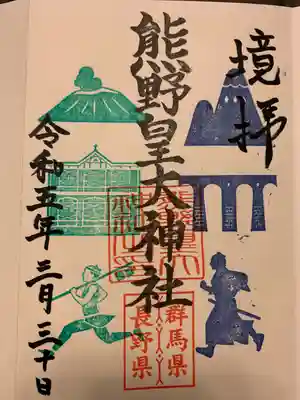 境拝
熊野皇大神社
群馬県
長野県
令和五年 三月 三十日